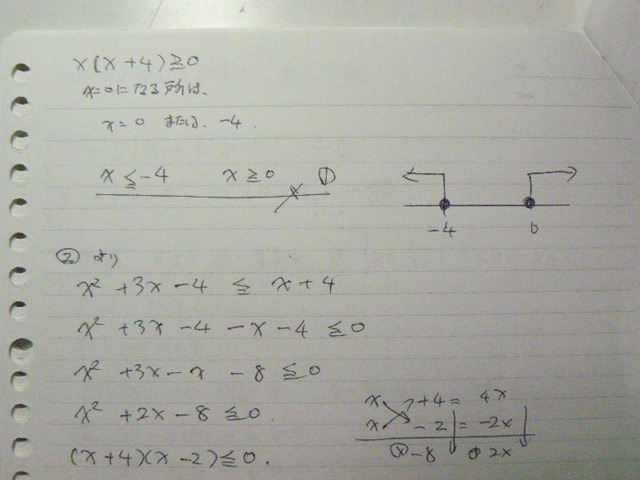 x(x+4)≧0
x=0になる所は、
x=0 または、-4.
x≦-4 x≧0 ①
-4 0
② より
x² +3x-4 ≦ x+4
x² +3x-4-x-4 ≦0
x² +3x-x-8 ≦0
x² +2x-8 ≦0.
(x+4)(x-2)≦0.
x +4= 4x
x -2 = -2x
⊗-8 ⊕2x